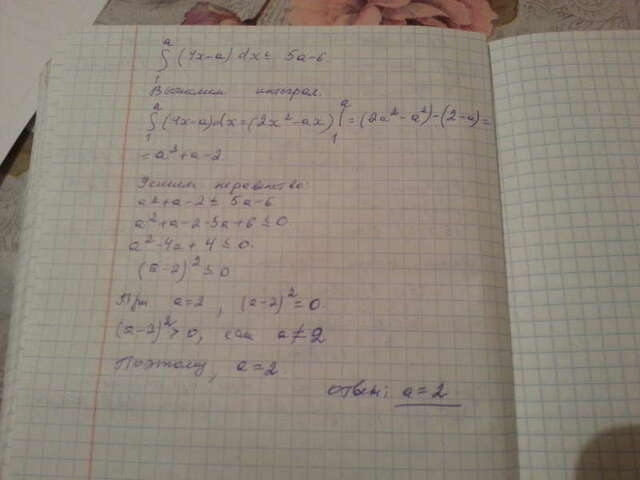 ∫₁ᵃ (4x-a) dx ≤ 5a-6
Вычислим интеграл.
∫₁ᵃ (4x-a)dx = (2x² - ax) |₁ᵃ = (2a² - a²) - (2-a) =
= a² + a - 2
Решим неравенство:
a² + a - 2 ≤ 5a - 6
a² + a - 2 - 5a + 6 ≤ 0
a² - 4a + 4 ≤ 0.
(a-2)² ≤ 0
При a = 2, (a-2)² = 0.
(a-2)² > 0, если a ≠ 2
Поэтому, a = 2.
Ответ: a = 2